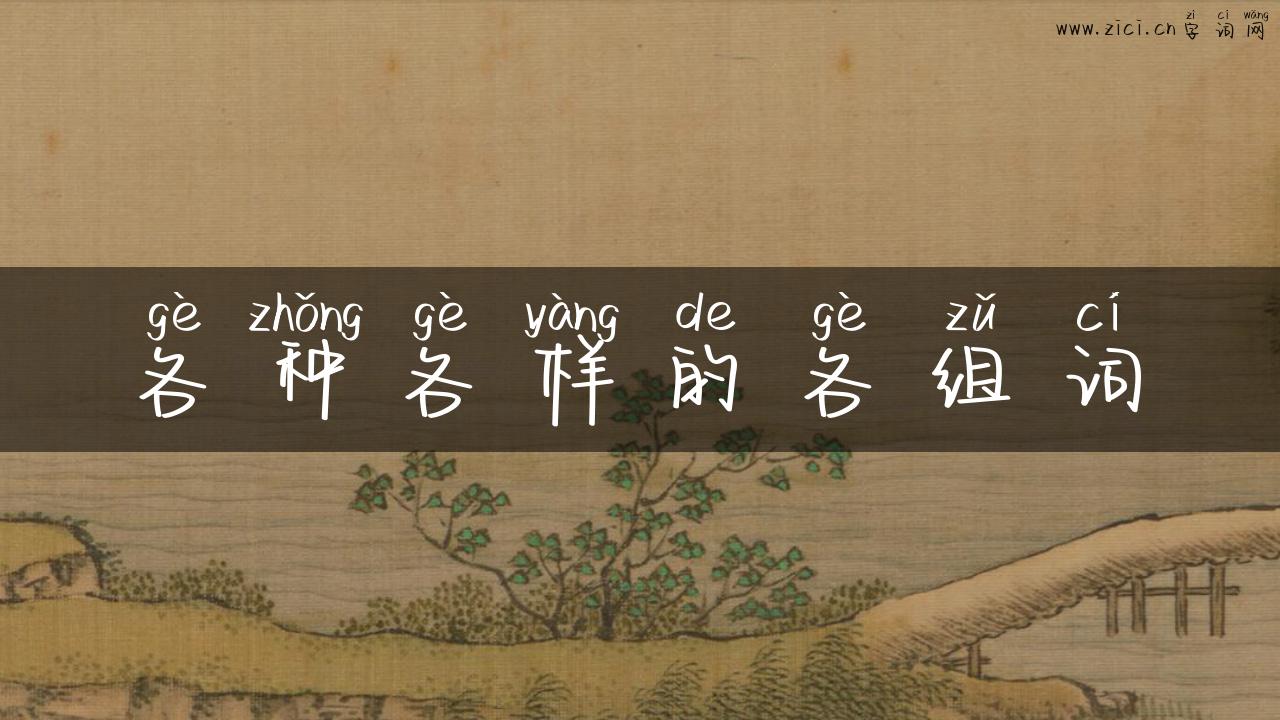 zì cí wǎng
www.zici.cn 字词网
gè zhǒng gè yàng de gè zǔ cí
各种各样的各组词